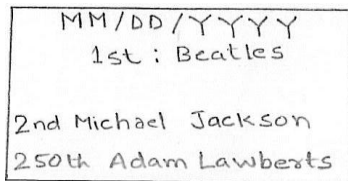 MM/DD/YYYY
1st : Beatles
2nd Michael Jackson
250th Adam Lawberts